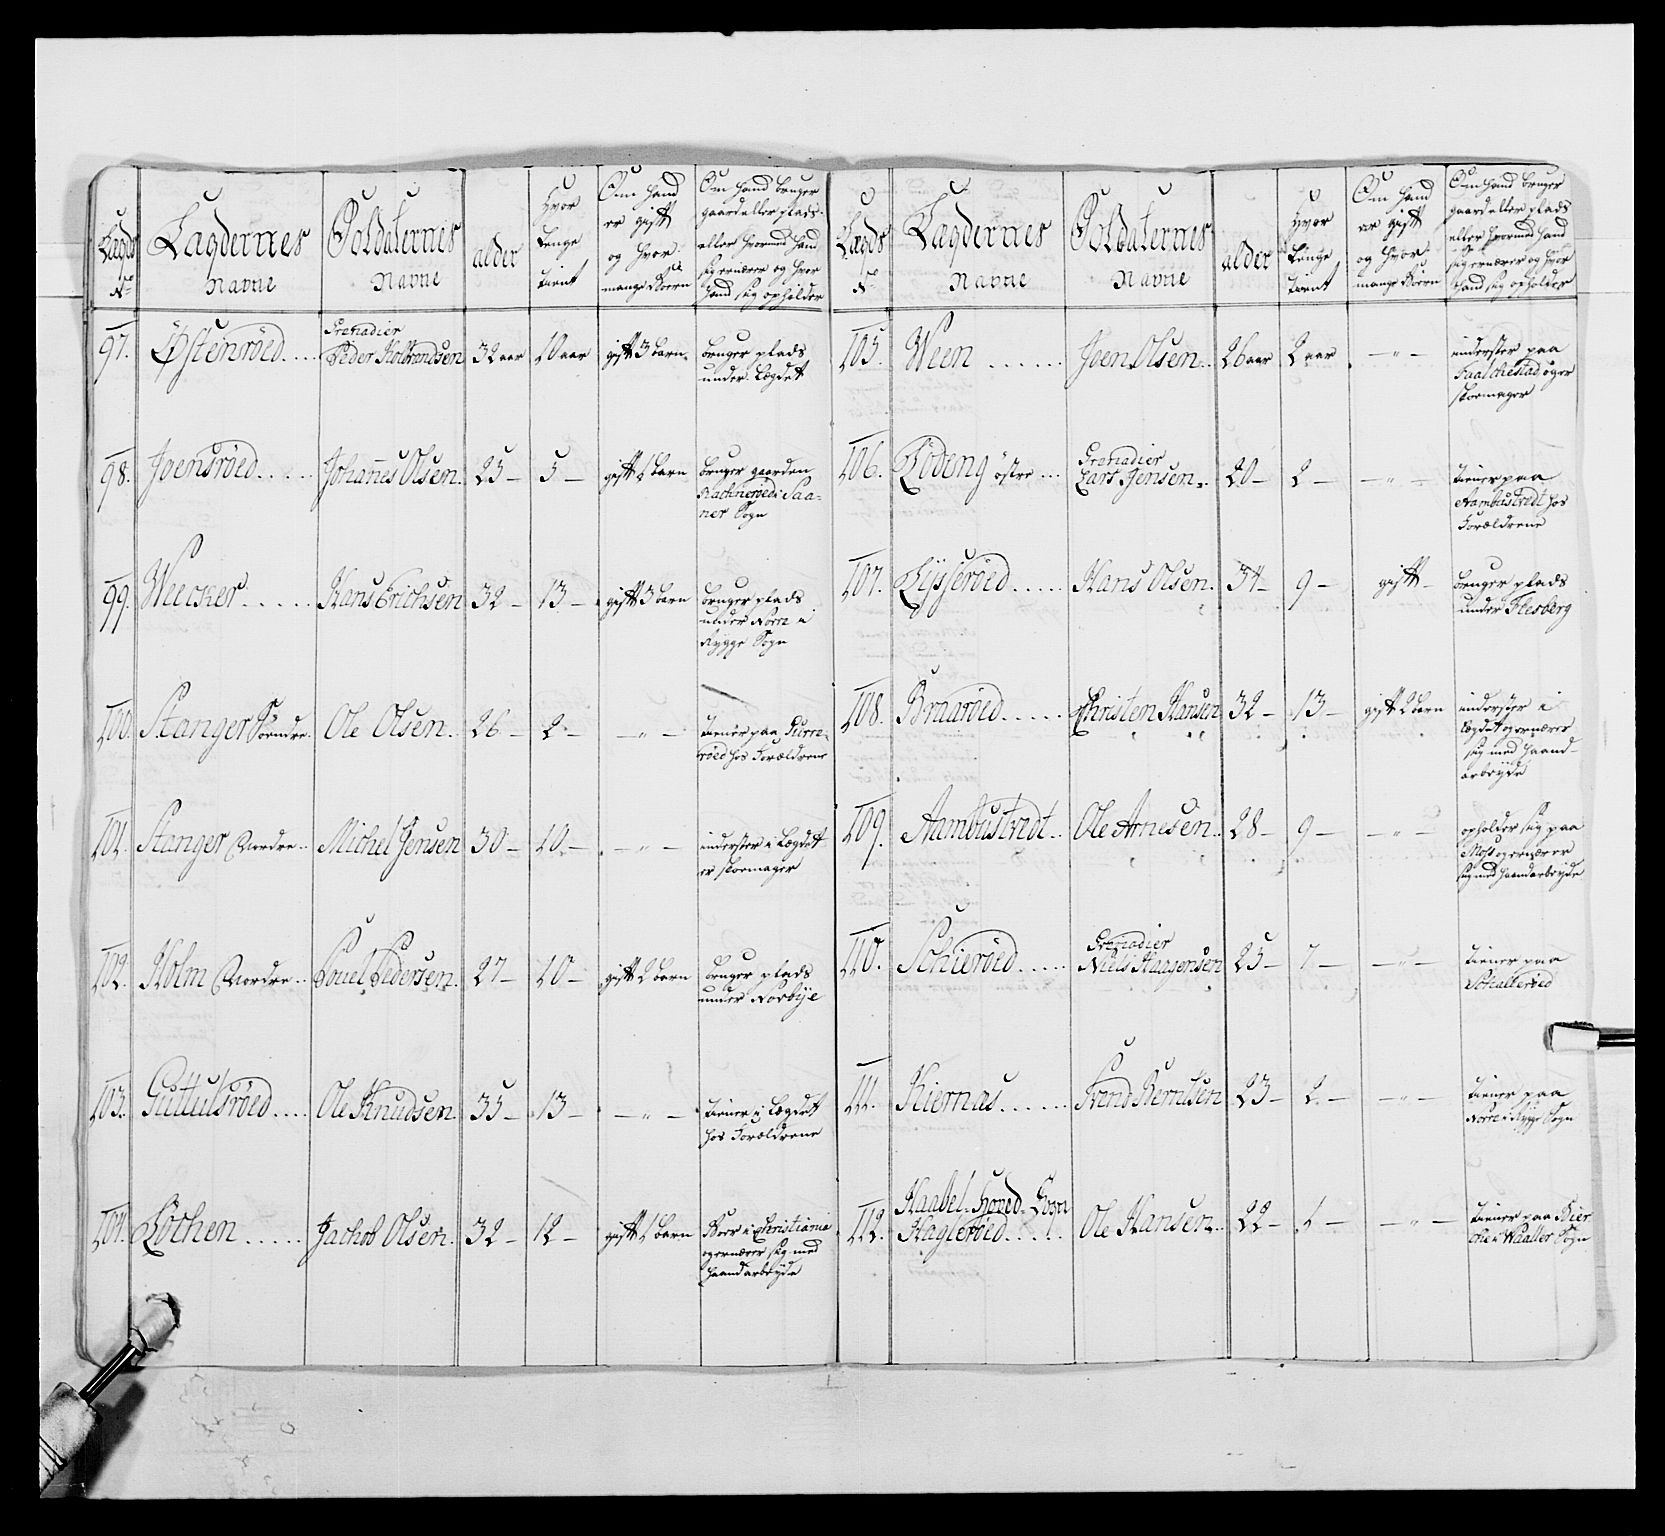 Lægds No
Lægdernes Navne
Soldaternes Navne
alder
Hvor lenge tient
Om hand er gift og hvor mange Børn
Om hand bruger gaard eller plads eller hvormed hand sig ernærer og hvor hand sig opholder
97. Østenröed.... Grenadier Peder Kolbrendsen 32 aar 10 aar gift 3 barn bruger plads
under Lægdet
98. Joensröed..... Johannes Olsen. 25 – 5 – gift 1 barn bruger gaarden
i Saa-
ner Sogn
99. Weecker..... Hans Erichsen 32 – 13 – gift 3 barn bruger plads
under Norre i
Rygge Sogn
100. Stanger Søndre. Ole Olsen. 26 – 2 – – " – tiener paa Purre-
röed hos Forældrene
101. Stanger Nordre.. Michel Jensen 30 – 10 – – " – inderster i Lægdet
er skoemager
102. Holm Nordre.. Povel Pedersen. 27 – 10 – gift 2 barn bruger plads
under Norbÿe
103. Guttulsröed.... Ole Knudsen. 35 – 13 – – " – tiener i Lægdet
hos Forældrene
104. Löchen..... Jachob Olsen. 32 – 12 – gift 1 barn Boer i Christiania
og ernærer sig med
haandarbeÿde
Lægds No
Lægdernes Navne
Soldaternes Navne
alder
Hvor lenge tient
Om Hand er gift og hvor mange Børn
Om hand bruger gaard eller plads eller hvormed hand sig ernærer og hvor hand sig opholder
105. Ween...... Joen Olsen.. 26 aar 2 aar – " – inderster paa
og er
skoemager
106. Lödeng östre... Grenadier Lars Jensen.. 20 – 2 – – " – tiener paa
Aambustvedt hos
Forældrene
107. Lysseröed..... Hans Olsen. 34 – 9 – gift – bruger plads
under Flesberg
108. Braaröed..... Christen Hansen 32 – 13 – gift 2 barn inderster i
Lægdet og ernærer
sig med haand-
arbeÿde
109. Aambustvedt.. Ole Arnesen.. 28 – 9 – – " – opholder sig paa
Moss og ernærer
sig med haandarbeÿde
110. Schieröed..... Grenadier Niels Haagensen 25 – 7 – – " – tiener paa

111. Kiernæs...... Svend Berntsen 23 – 2 – – " – tiener paa
Norre i Rygge Sogn
Haabel Hoved Sogn
112. Hagleröed.... Ole Hansen.. 22 – 1 – – " – tiener paa Bier
che i Waaller Sogn